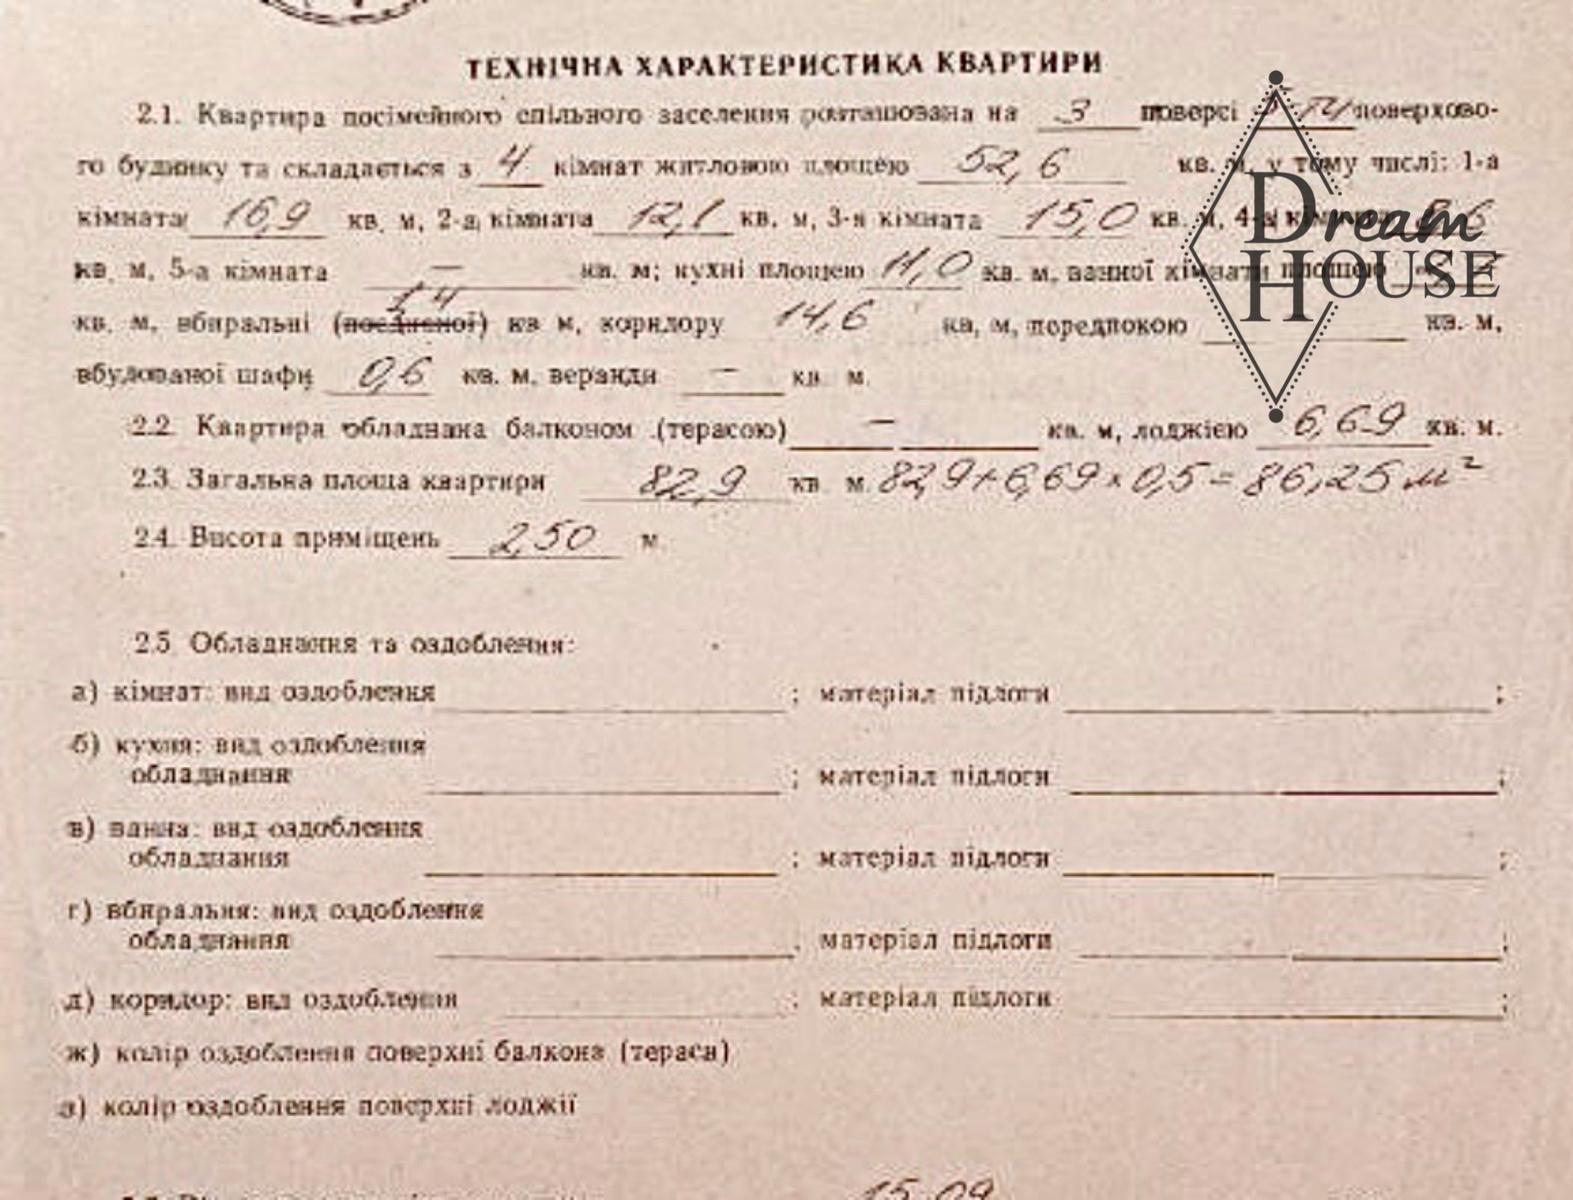 ТЕХНІЧНА ХАРАКТЕРИСТИКА КВАРТИРИ
2.1. Квартира посімейного спільного заселення розташована на 3 поверсі 5-ти поверхово-
го будинку та складається з 4 кімнат житловою площею 52,6 кв. м, у тому числі: 1-а
кімната 16,9 кв. м, 2-а кімната 12,1 кв. м, 3-я кімната 15,0 кв. м, 4-а кімната 8,6
кв. м, 5-а кімната — кв. м; кухні площею 11,0 кв. м, ванної кімнати площею
кв. м, вбиральні (поєднаної) 1,4 кв м, коридору 14,6 кв, м, передпокою кв. м,
вбудованої шафи 0,6 кв. м. веранди — кв. м.
2.2. Квартира обладнана балконом (терасою) — кв. м, лоджією 6,69 кв. м.
2.3. Загальна площа квартири 82,9 кв. м. 82,9+6,69×0,5=86,25 м²
2.4. Висота приміщень 2,50 м.
2.5 Обладнання та оздоблення:
а) кімнат: вид оздоблення ; матеріал підлоги ;
б) кухня: вид оздоблення
обладнання ; матеріал підлоги ;
в) ванна: вид оздоблення
обладнання ; матеріал підлоги ;
г) вбиральня: вид оздоблення
обладнання ; матеріал підлоги ;
д) коридор: вид оздоблення ; матеріал підлоги ;
ж) колір оздоблення поверхні балкона (тераси)
з) колір оздоблення поверхні лоджії
Dream
HOUSE